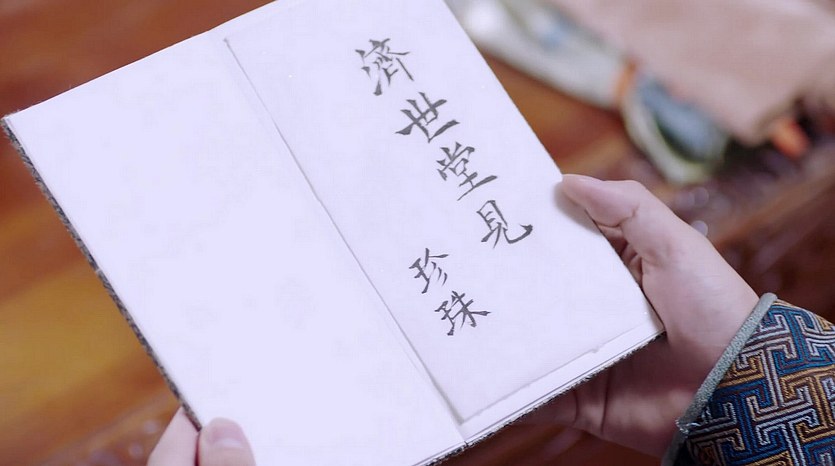 濟世堂見
珍珠